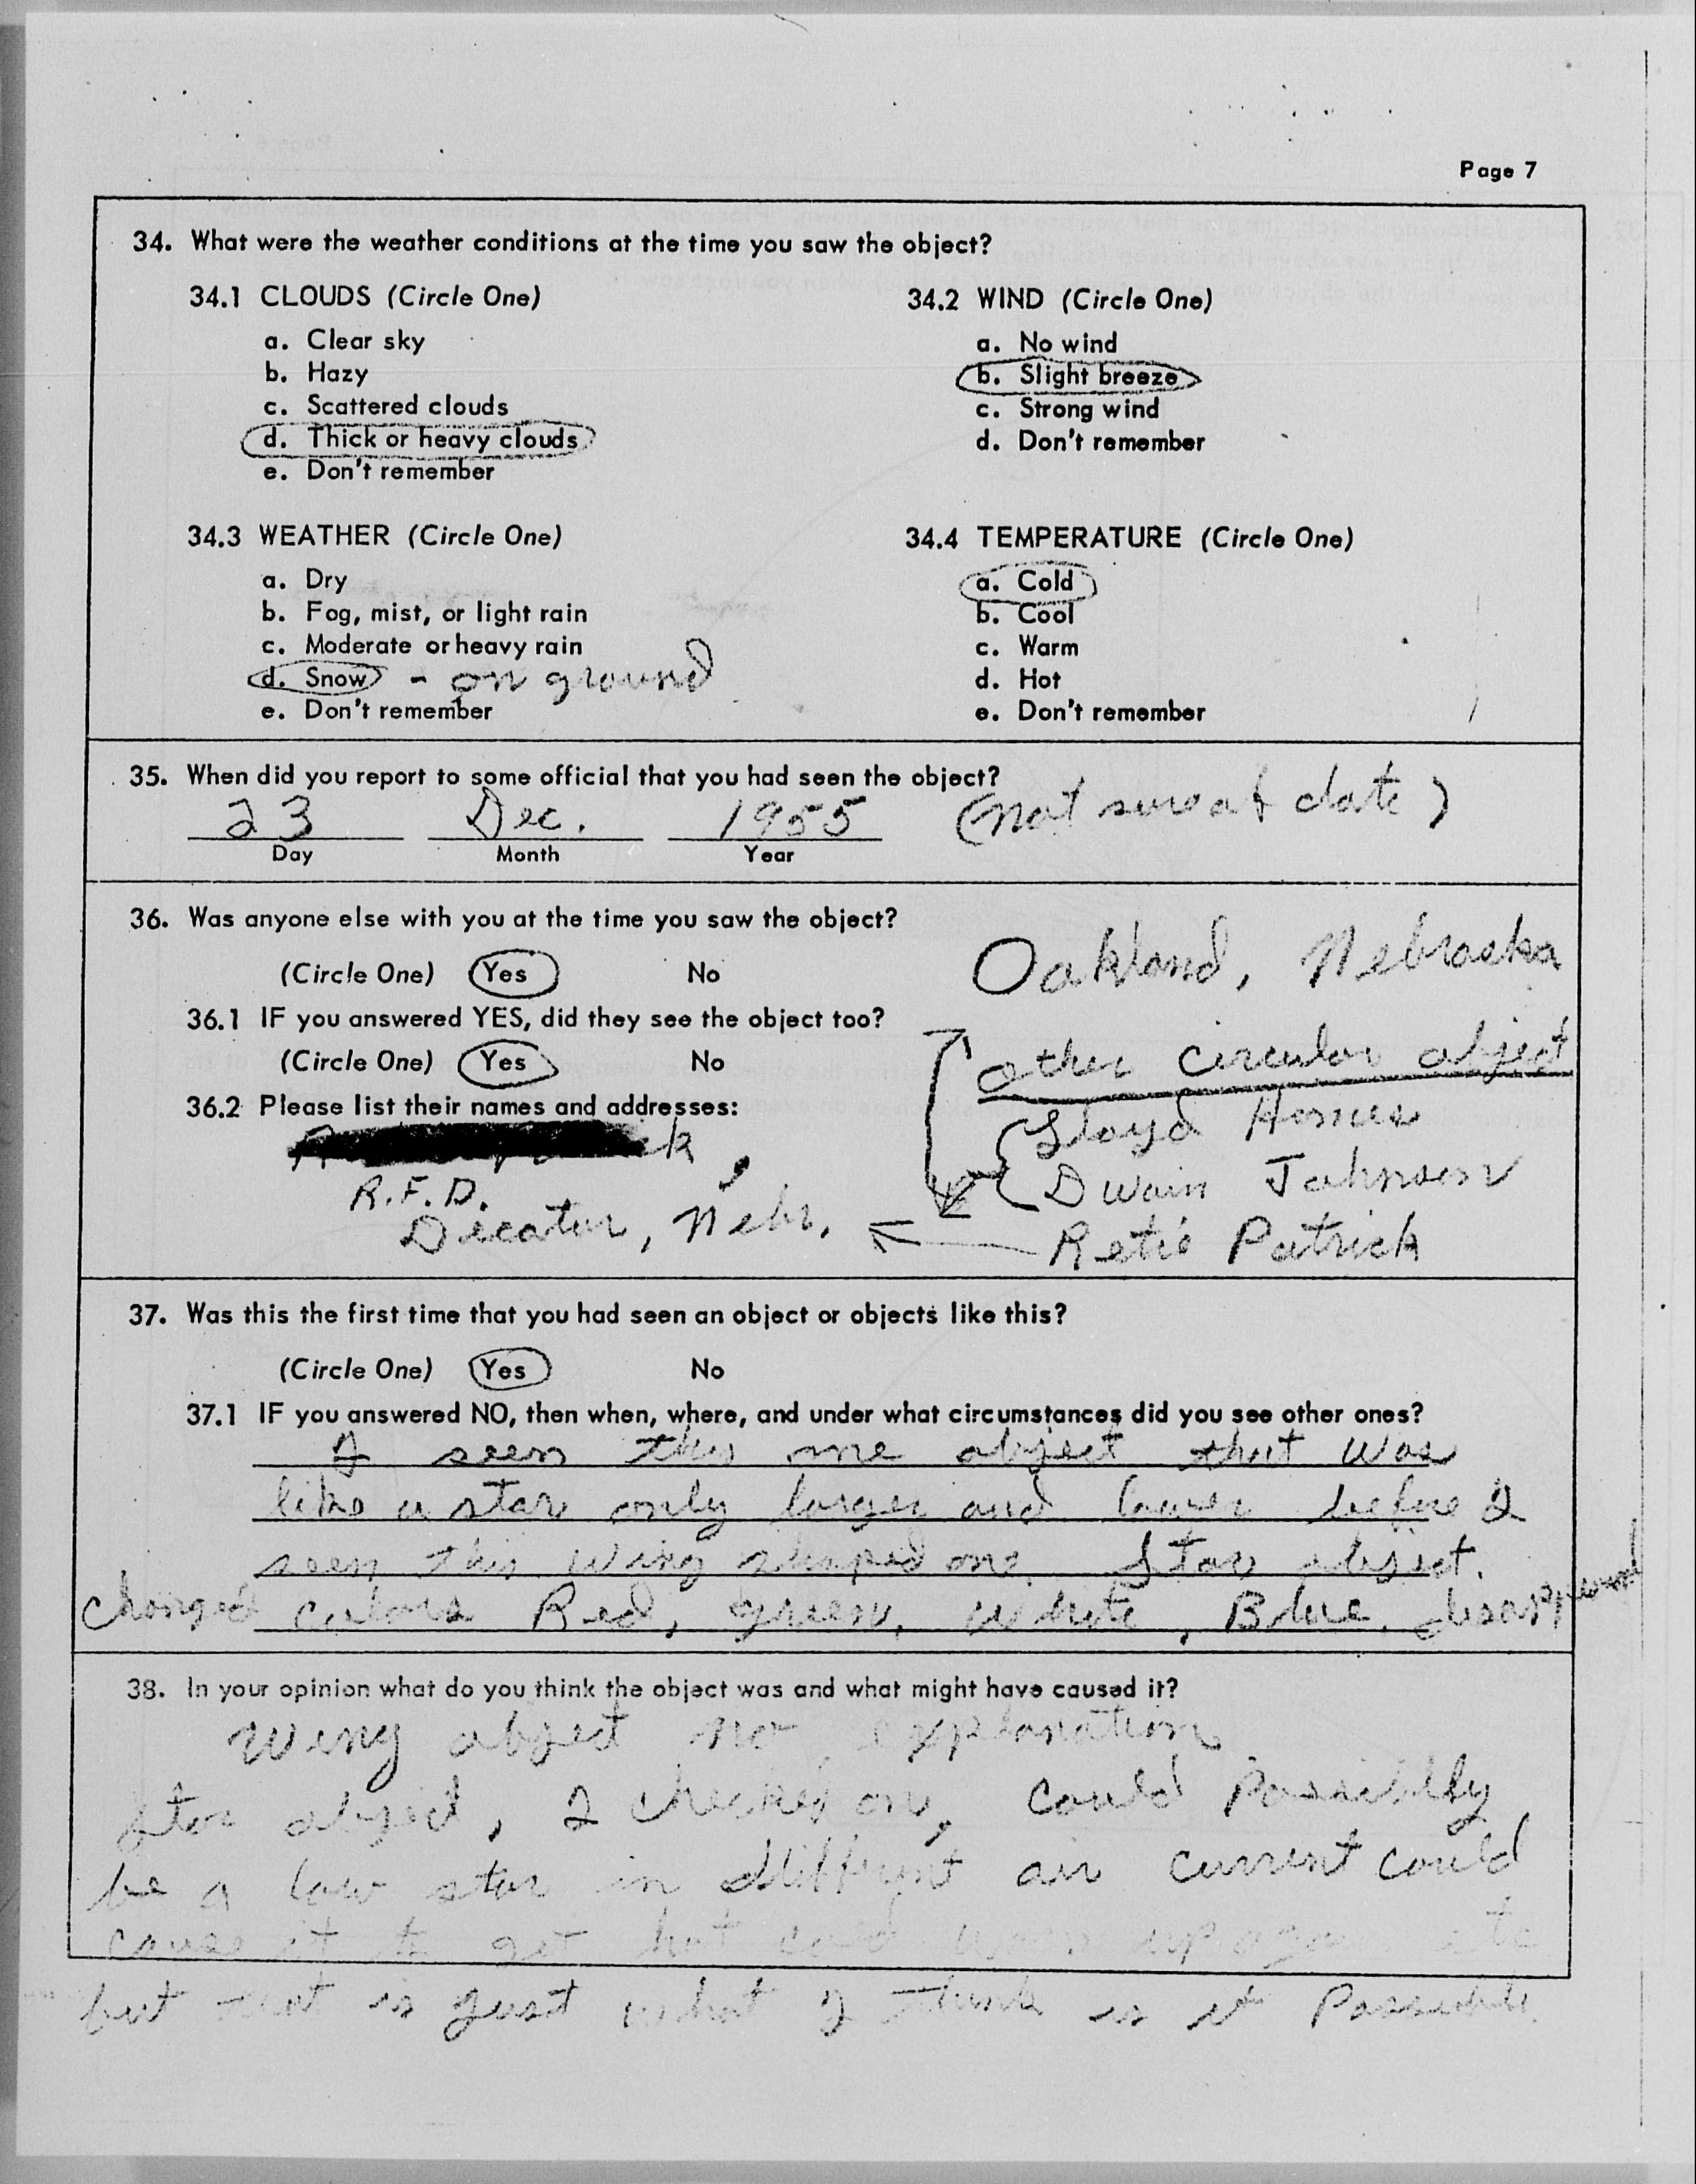 Page 7
34. What were the weather conditions at the time you saw the object?
34.1 CLOUDS (Circle One)
a. Clear sky
b. Hazy
c. Scattered clouds
d. Thick or heavy clouds
e. Don't remember
34.2 WIND (Circle One)
a. No wind
b. Slight breeze
c. Strong wind
d. Don't remember
34.3 WEATHER (Circle One)
a. Dry
b. Fog, mist, or light rain
c. Moderate or heavy rain
d. Snow - on ground
e. Don't remember
34.4 TEMPERATURE (Circle One)
a. Cold
b. Cool
c. Warm
d. Hot
e. Don't remember
35. When did you report to some official that you had seen the object?
23 Dec. 1955 (not sure of date)
Day Month Year
36. Was anyone else with you at the time you saw the object?
(Circle One) Yes No
36.1 IF you answered YES, did they see the object too?
(Circle One) Yes No
36.2 Please list their names and addresses:
R.F.D.
Decatur, Nebr.
Oakland, Nebraska
other circular object
Lloyd
Dwain Johnson
Retie Patrick
37. Was this the first time that you had seen an object or objects like this?
(Circle One) Yes No
37.1 IF you answered NO, then when, where, and under what circumstances did you see other ones?
I seen this one object that was
like a star only larger and lower before I
seen this wing shaped one. Star object.
changed colors Red, green, white, Blue.
38. In your opinion what do you think the object was and what might have caused it?
wing object no explanation
Star object, I checked on, could Possibilly
be a low star in diffrynt air current could
cause it to get hot cool warm up again etc
but that is just what I think is it Possible.